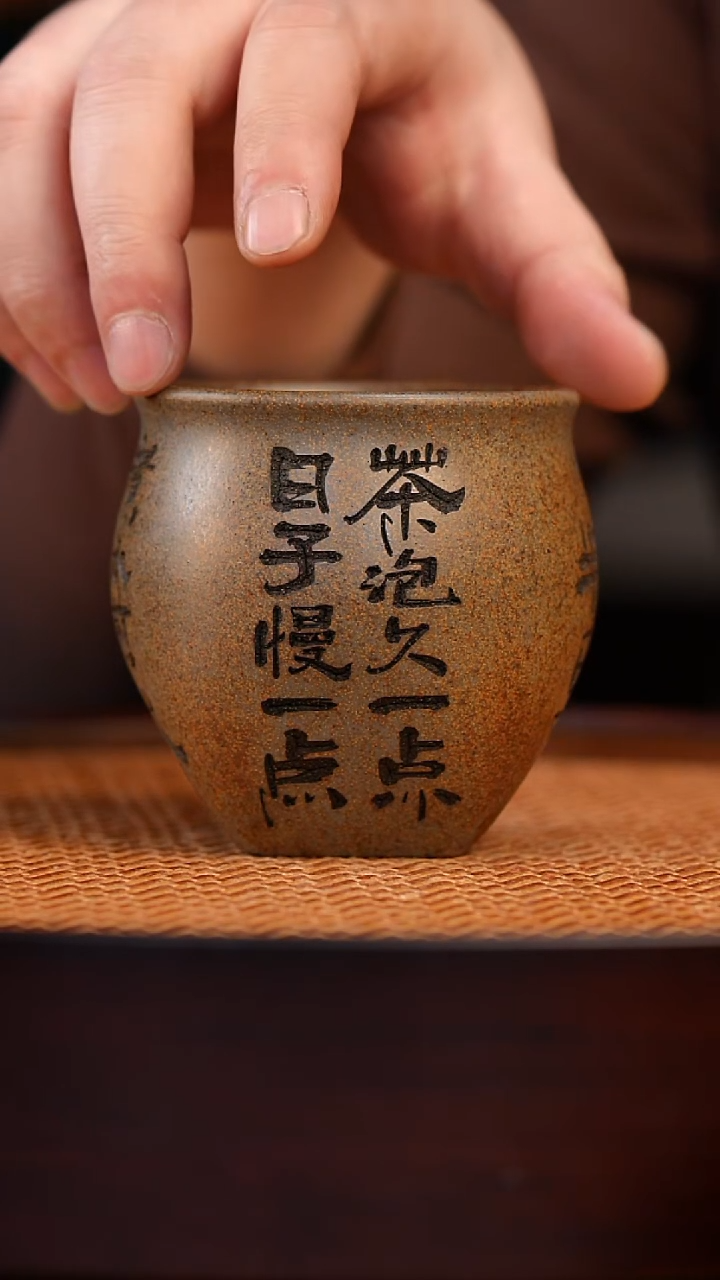 茶泡久一点
日子慢一点